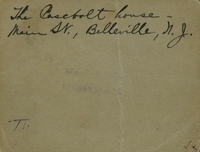 The Casebolt house -
Main St., Belleville, N. J.